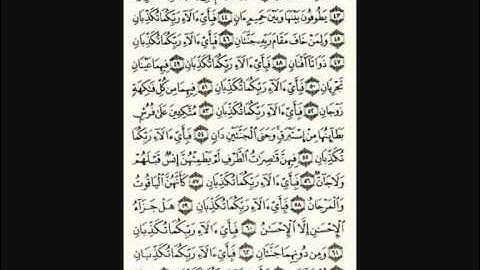 ﴿٤٣﴾ يَطُوفُونَ بَيْنَهَا وَبَيْنَ حَمِيمٍ ءَانٍ ﴿٤٤﴾ فَبِأَيِّ ءَالَآءِ رَبِّكُمَا تُكَذِّبَانِ
﴿٤٥﴾ وَلِمَنْ خَافَ مَقَامَ رَبِّهِۦ جَنَّتَانِ ﴿٤٦﴾ فَبِأَيِّ ءَالَآءِ رَبِّكُمَا تُكَذِّبَانِ
﴿٤٧﴾ ذَوَاتَآ أَفْنَانٍ ﴿٤٨﴾ فَبِأَيِّ ءَالَآءِ رَبِّكُمَا تُكَذِّبَانِ ﴿٤٩﴾ فِيهِمَا عَيْنَانِ
تَجْرِيَانِ ﴿٥٠﴾ فَبِأَيِّ ءَالَآءِ رَبِّكُمَا تُكَذِّبَانِ ﴿٥١﴾ فِيهِمَا مِن كُلِّ فَٰكِهَةٍ
زَوْجَانِ ﴿٥٢﴾ فَبِأَيِّ ءَالَآءِ رَبِّكُمَا تُكَذِّبَانِ ﴿٥٣﴾ مُتَّكِـِٔينَ عَلَىٰ فُرُشٍ
بَطَآئِنُهَا مِنْ إِسْتَبْرَقٍ وَجَنَى ٱلْجَنَّتَيْنِ دَانٍ ﴿٥٤﴾ فَبِأَيِّ ءَالَآءِ رَبِّكُمَا
تُكَذِّبَانِ ﴿٥٥﴾ فِيهِنَّ قَٰصِرَٰتُ ٱلطَّرْفِ لَمْ يَطْمِثْهُنَّ إِنسٌ قَبْلَهُمْ
وَلَا جَآنٌّ ﴿٥٦﴾ فَبِأَيِّ ءَالَآءِ رَبِّكُمَا تُكَذِّبَانِ ﴿٥٧﴾ كَأَنَّهُنَّ ٱلْيَاقُوتُ
وَٱلْمَرْجَانُ ﴿٥٨﴾ فَبِأَيِّ ءَالَآءِ رَبِّكُمَا تُكَذِّبَانِ ﴿٥٩﴾ هَلْ جَزَآءُ
ٱلْإِحْسَٰنِ إِلَّا ٱلْإِحْسَٰنُ ﴿٦٠﴾ فَبِأَيِّ ءَالَآءِ رَبِّكُمَا تُكَذِّبَانِ
﴿٦١﴾ وَمِن دُونِهِمَا جَنَّتَانِ ﴿٦٢﴾ فَبِأَيِّ ءَالَآءِ رَبِّكُمَا تُكَذِّبَانِ